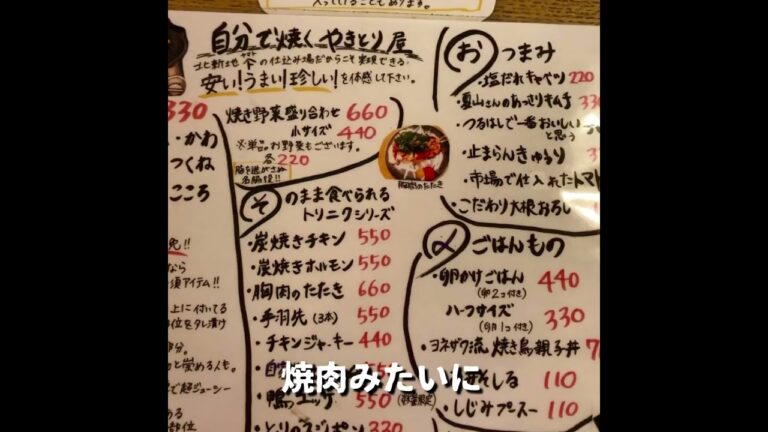 入っていることもあります。
自分で焼くやきとり屋
北新地の仕込み場だからこそ実現できる
安い!うまい!珍しい!を体感して下さい。
330
・かわ
つくね
こころ
焼き野菜盛り合わせ 660
小サイズ 440
※単品お野菜もございます。
各220
胸肉のたたき
そのまま食べられる
トリニクシリーズ
・炭焼きチキン 550
・炭焼きホルモン 550
・胸肉のたたき 660
・手羽先(3本) 550
・チキンジャーキー 440
550
とりのスジポン 330
おつまみ
・塩だれキャベツ 220
・夏山さんのあっさりキムチ
・つるはしで一番おいしい
と思う
・止まらんきゅうり
・市場で仕入れたトマト
・こだわり大根おろし
〆ごはんもの
・卵かけごはん 440
(卵2コ付き)
ハーフサイズ 330
(卵1コ付き)
・ヨネザワ流 焼き鳥親子丼
そしる 110
・しじみプースー 110
なら
須アイテム!!
上に付いてる
部位をタレ漬け
部分。
と炭める人も。
で超ジューシー
ある
部位
焼肉みたいに